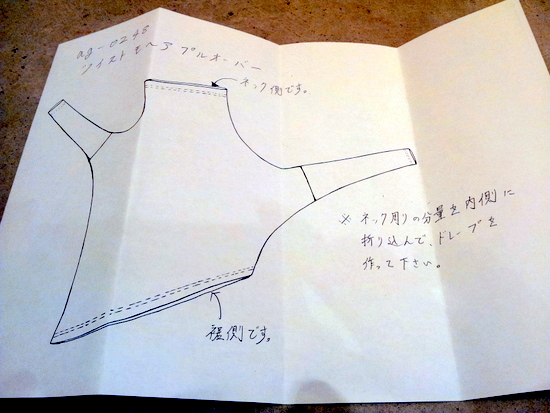 ag-0248
ツイストモヘアプルオーバー
ネック側です。
※ ネック周りの分量を内側に
折り込んで、ドレープを
作って下さい。
裾側です。